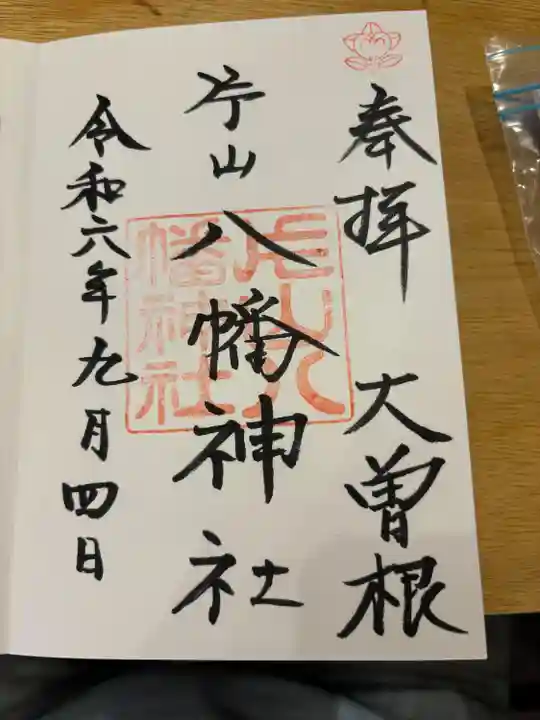 奉拝 大曽根
片山八幡神社
令和六年九月四日
片山八
幡神社